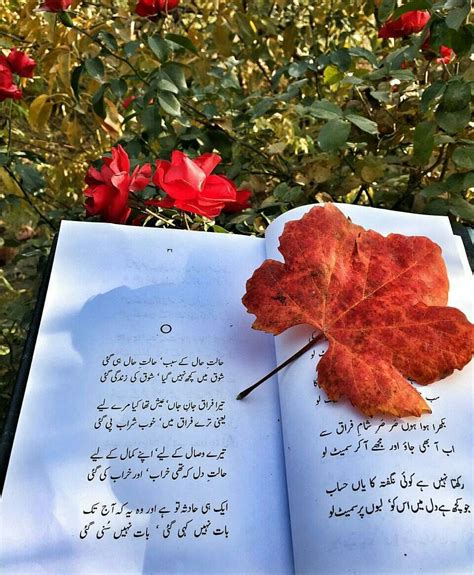 ۳۱
حالتِ حال کے سبب، حالتِ حال ہی گئی
شوق میں کچھ نہیں گیا، شوق کی زندگی گئی
تیرا فراق جانِ جاں، عیش تھا کیا مرے لیے
یعنی ترے فراق میں، خوب شراب پی گئی
تیرے وصال کے لیے، اپنے کمال کے لیے
حالتِ دل کہ تھی خراب، اور خراب کی گئی
ایک ہی حادثہ تو ہے اور وہ یہ کہ آج تک
بات نہیں کہی گئی، بات نہیں سُنی گئی
لو
بکھرا ہوا ہوں صرصرِ شامِ فراق سے
اب آ بھی جاؤ اور مجھے آ کر سمیٹ لو
رکھتا نہیں ہے کوئی نگفتہ کا یاں حساب
جو کچھ ہے دل میں اس کو، لبوں پر سمیٹ لو